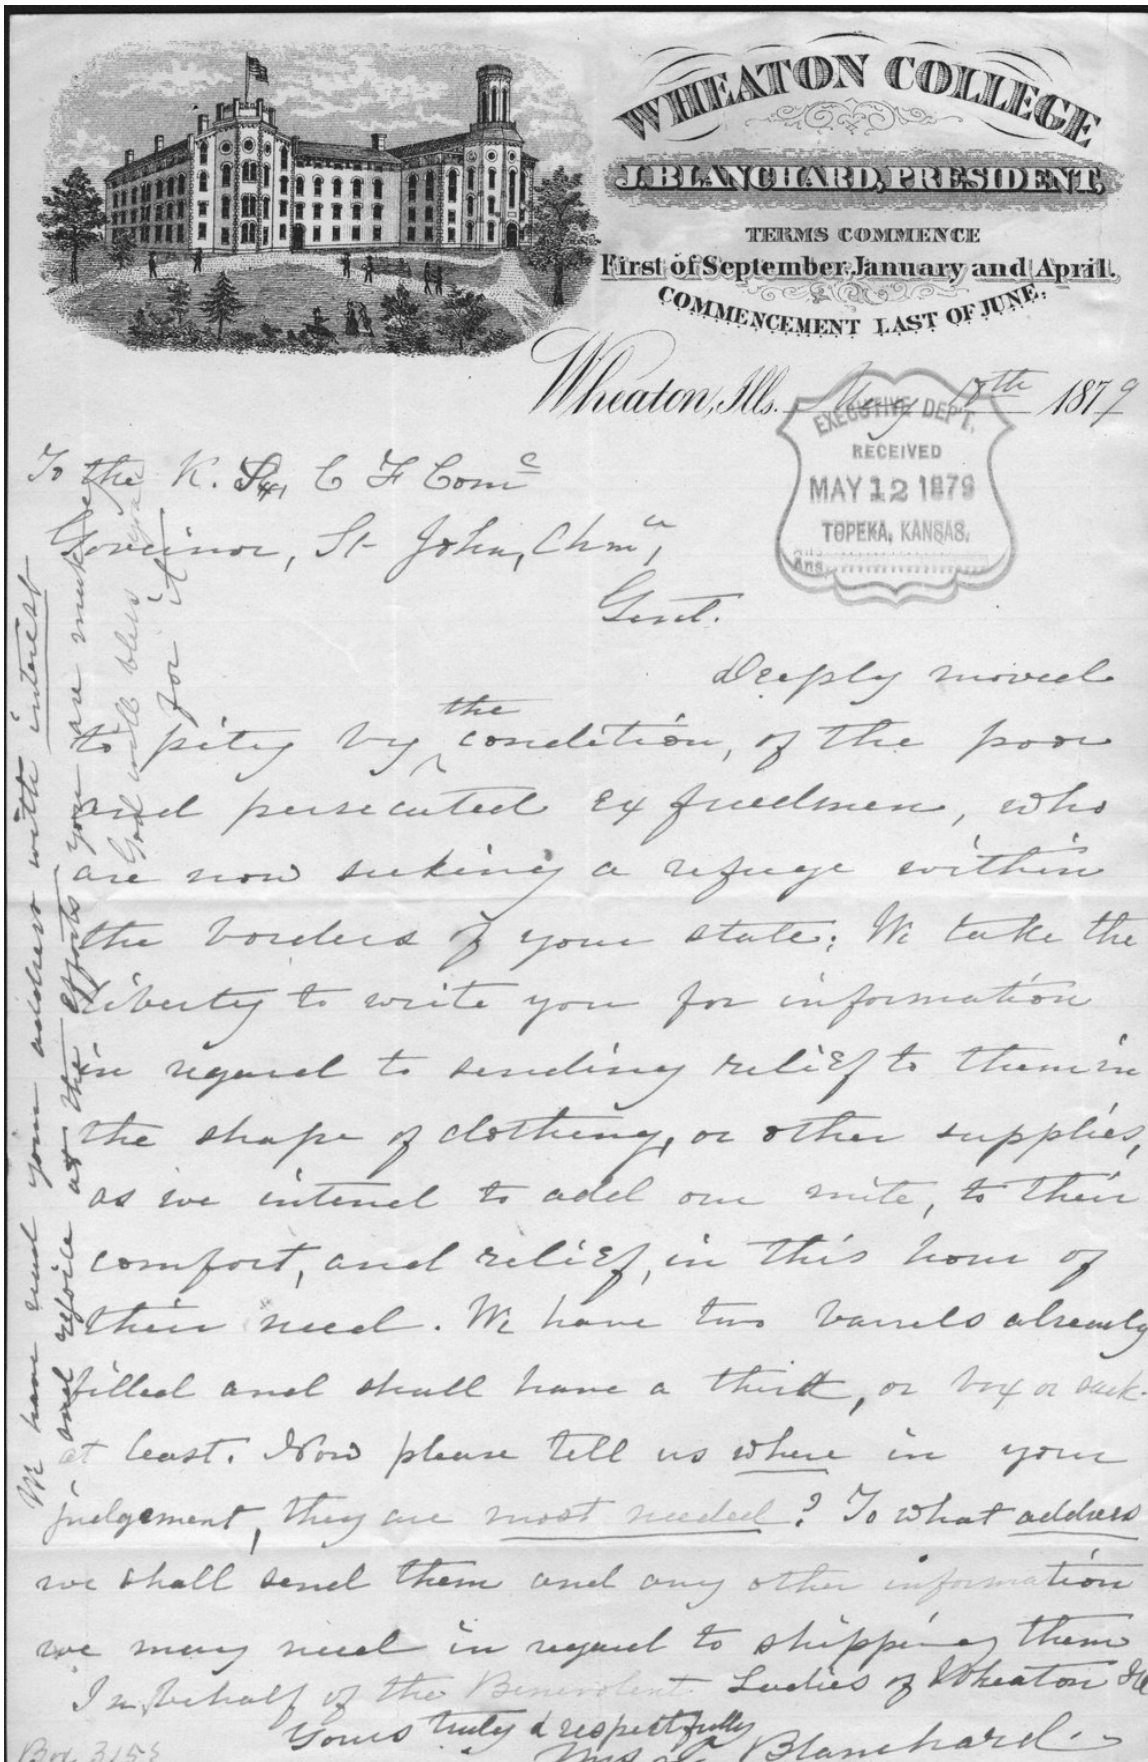 WHEATON COLLEGE
J. BLANCHARD, PRESIDENT,
TERMS COMMENCE
First of September, January and April.
COMMENCEMENT LAST OF JUNE.
Wheaton, Ills. May th 1879
EXECUTIVE DEPT.
RECEIVED
MAY 12 1879
TOPEKA, KANSAS.
Ans.
To the K. C F Come
Governor, St John, Chmn,
Gent.
Deeply moved
to pity by the condition, of the poor
and persecuted Ex freedmen, who
are now seeking a refuge within
the borders of your state; We take the
liberty to write you for information
in regard to sending relief to them in
the shape of clothing, or other supplies,
as we intend to add our mite, to their
comfort, and relief, in this hour of
their need. We have two barrels already
filled and shall have a third, or box or sack
at least. Now please tell us where in your
judgement, they are most needed? To what address
we shall send them and any other information
we may need in regard to shipping them
In behalf of the Benevolent Ladies of Wheaton Ill
Yours truly & respectfully
Mrs Blanchard
We have read your address with interest
and rejoice at the efforts you are making
God will bless you
for it
Box 3153